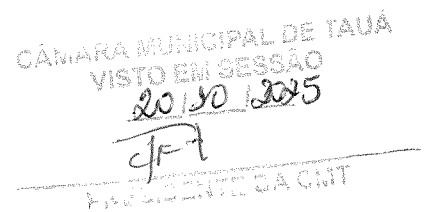 CÂMARA MUNICIPAL DE TAUÁ
VISTO EM SESSÃO
20 / 10 / 2025
PRESIDENTE DA CMT